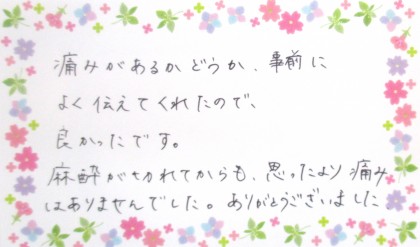 痛みがあるかどうか、事前に
よく伝えてくれたので、
良かったです。
麻酔が切れてからも、思ったより痛み
はありませんでした。ありがとうございました。